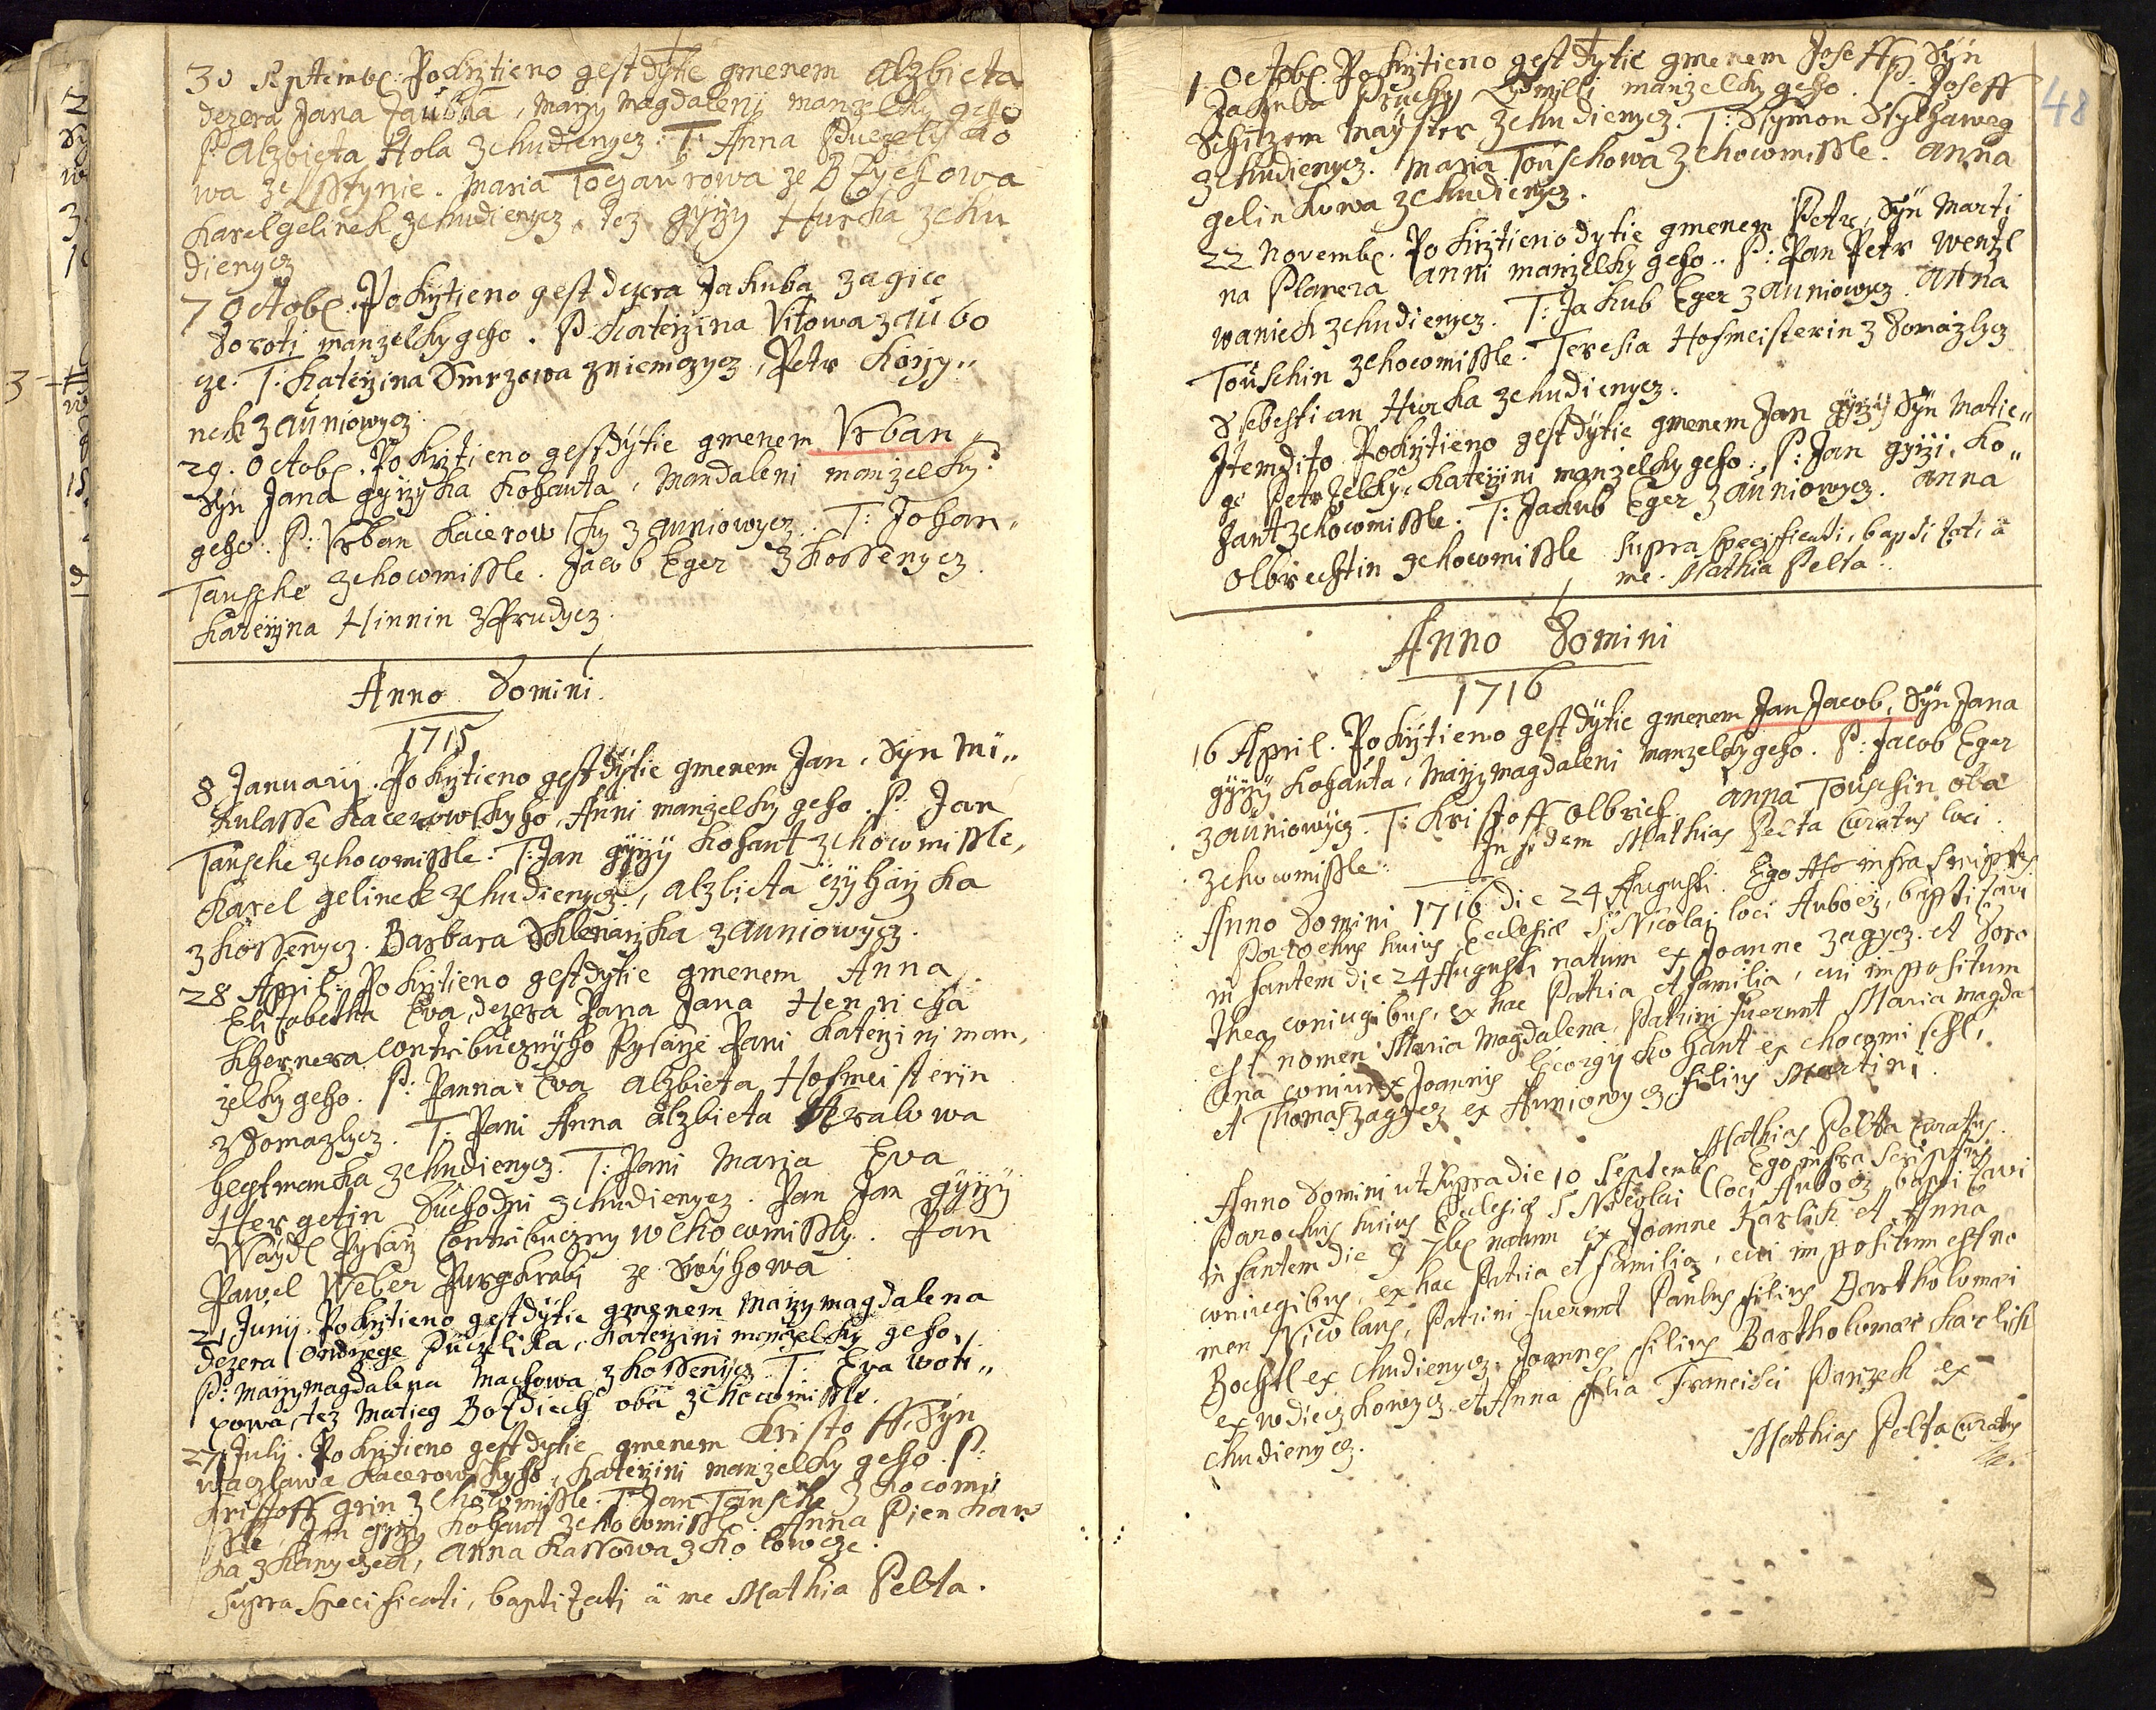 30 Septembr: Pokrztieno gest dytie gmenem Alzbieta
dczera Jana Jaubka, Marzy Magdaleny manzelky geho
P: Alzbieta Hola z Chudienycz. T: Anna Puczelik
wa ze Sstynie. Maria Toczaurowa ze
Karel Gelinek z Chudienycz, tez Gyrzy Hurka z Chu
dienycz
7 Octobr. Pokrztieno gest dczera Jakuba Zagice
Doroti manzelky geho. P: Katerzina Vitowa z Aubo
cze. T: Katerzina Smrzowa z Niemczycz, Petr Korzy„
nek z Auniowycz.
29. Octobr. Pokrztieno gest dytie gmenem Vrban„
Syn Jana Gyrzyka Kohauta, Mandaleni manzelky
geho. P: Vrban Kacerowsky z Auniowycz. T: Johan„
Tausche z Chocomissle. Jacob Eger z Kossenycz.
Katerzyna Hinnin z
Anno Domini.
1715
8 Januarij. Pokrztieno gest dytie gmenem Jan, Syn Mi„
kulasse Kacerowskyho, Anni manzelky geho. P: Jan
Tausche z Chocomissle. T: Jan Gyrzy Kohaut z Chocomissle,
Karel Gelinek z Chudienycz, Alzbieta
z Kossenycz. Barbara Sklenarzka z Auniowycz.
28 April: Pokrztieno gest dytie gmenem Anna
Elizabetha Eva, dczera Pana Jana Henricha
Khernera Contribucznyho Pysarze Pani Katerzini man,
zelky geho. P: Panna Eva Alzbieta Hofmeisterin
z Domazlycz. T: Pani Anna Alzbieta
hegtmanka z Chudienycz. T: Pani Maria Eva
Hergetin Duchodni z Chudienycz. Pan Jan Gyrzy
Waydl Pysarz Contribuczny w Chocomissly. Pan
Pawel Weber Purgkrabi ze
21 Junij. Pokrztieno gest dytie gmenem Marzy Magdalena
dczera Ondrzege Puczelika, Katerzini manzelky geho,
P: Marzy Magdalena Machowa z Kossenycz T: Eva Woti„
xowa, tez Matieg Bozdiech oba z Chocomissle.
27 Julij. Pokrztieno gest dytie gmenem Kristoff, Syn
Waczlawa Kacerowskyho, Katerzini manzelky geho. P:
Kristoff Grin z Chocomissle. T: Jan Tausche z Chocomi
ssle, Jan Gyrzy Kohaut z Chocomissl. Anna Pienkaw
ka z Kanyczek, Anna Kassowa z Kolowcze.
Supra specificati, baptizati à me Mathia Pelta.
48
1 Octobr. Pokrztieno gest dytie gmenem Joseff, Syn
Jakuba Pruchy, Lydmilli manzelky geho. P: Joseff
Schitzem Mayster z Chudienycz. T: Ssymon
z Chudienycz. Maria Touschowa z Chocomissle. Anna
Gelinkowa z Chudienycz.
22 Novembr. Pokrztieno dytie gmenem Petr, Syn Marti
na Planera Anni manzelky geho. P: Pan Petr Wentzl
Waniek z Chudienycz. T: Jakub Eger z Auniowycz. Anna
Touschin z Chocomissle. Teresia Hofmeisterin z Domazlycz
Ssebestian Hurka z Chudienycz.
Item dito Pokrztieno gest dytie gmenem Jan Gyrzy Syn Matie„
ge Petrzelky, Katerzini manzelky geho, P: Jan Gyrzi. Ko„
haut z Chocomissle. T: Jakub Eger z Auniowycz. Anna
Olbrechtin z Chocomissle Supra specificati, baptizati à
me. Mathia Pelta.
Anno Domini
1716
16 April. Pokrztieno gest dytie gmenem Jan Jacob, Syn Jana
Gyrzy Kohauta, Marzy Magdaleni manzelky geho. P: Jacob Eger
z Auniowycz. T: Kristoff Olbrich. Anna Touschin oba
z Chocomissle. In fidem Mathias Pelta Curatus loci.
Anno Domini 1716 die 24 Augusti. Ego infra scriptus
Parochus huius Ecclesiae S. Nicolai loci Aubocz, baptizavi
infantem die 24 Augusti natum ex Joanne Zagycz. et Doro
thea coniugibus, ex hac Patria et familia, cui impositum
est nomen Maria Magdalena, Patrini fuerunt Maria Magda
lena coniunx Joannis Georgij Kohaut ex Chocomischl,
et Thomas Zagycz ex Auniowycz filius Martini.
Mathias Pelta Curatus.
Anno Domini ut supra die 10 Septembr Ego infra scriptus
Parochus huius Ecclesiae S Nicolai loci Aubocz baptizavi
infantem die 9 7br natum ex Joanne Karlik et Anna
coniugibus, ex hac Patria et familia, cui impositum est no
men Nicolaus, Patrini fuerunt Paulus filius Bartholomaei
Bochtl ex Chudienycz, Joannes filius Bartholomaei Karlik
ex Wdieczkowycz, et Anna filia Francisci Parzek ex
Chudienycz.
Mathias Pelta Curatus